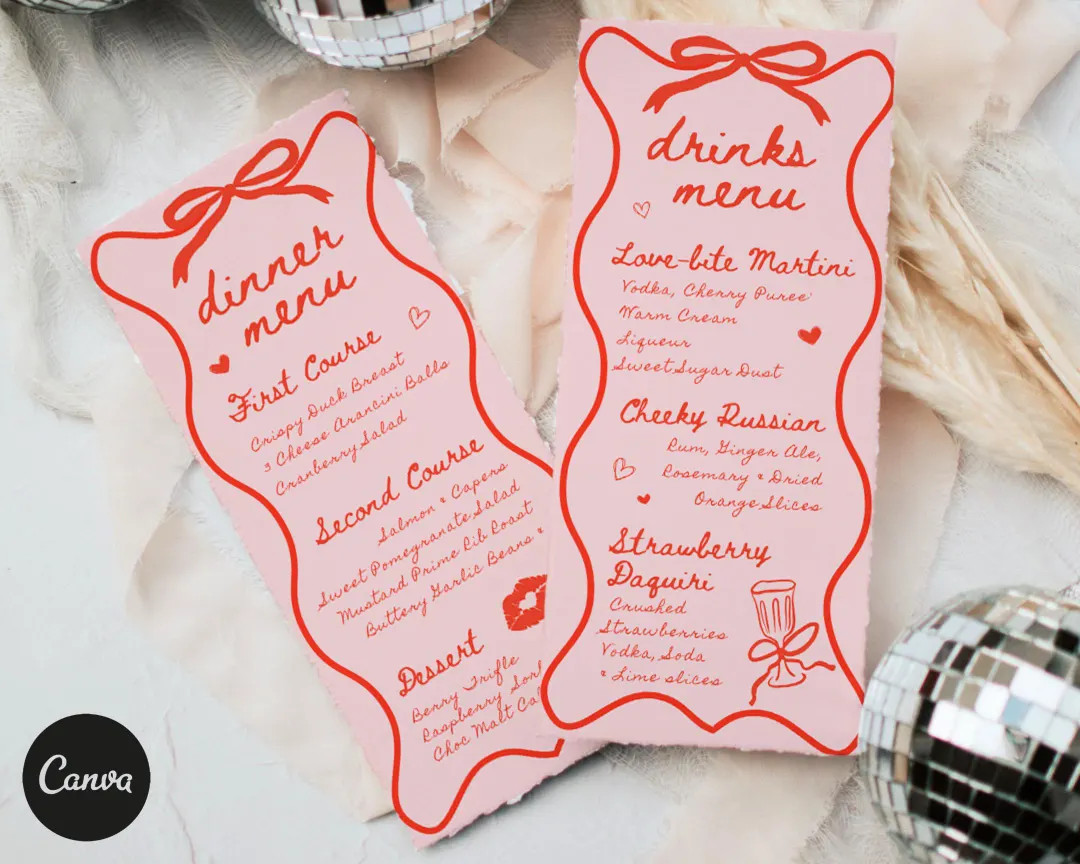 dinner
menu
First Course
Crispy Duck Breast
3 Cheese Arancini Balls
Cranberry Salad
Second Course
Salmon & Capers
Sweet Pomegranate Salad
Mustard Prime Rib Roast
Buttery Garlic Beans &
Dessert
Berry Trifle
Raspberry
Choc Malt
drinks
menu
Love-bite Martini
Vodka, Cherry Puree'
Warm Cream
Liqueur
Sweet Sugar Dust
Cheeky Russian
Rum, Ginger Ale,
Rosemary & Dried
Orange Slices
Strawberry
Daquiri
Crushed
Strawberries
Vodka, Soda
& Lime slices
Canva